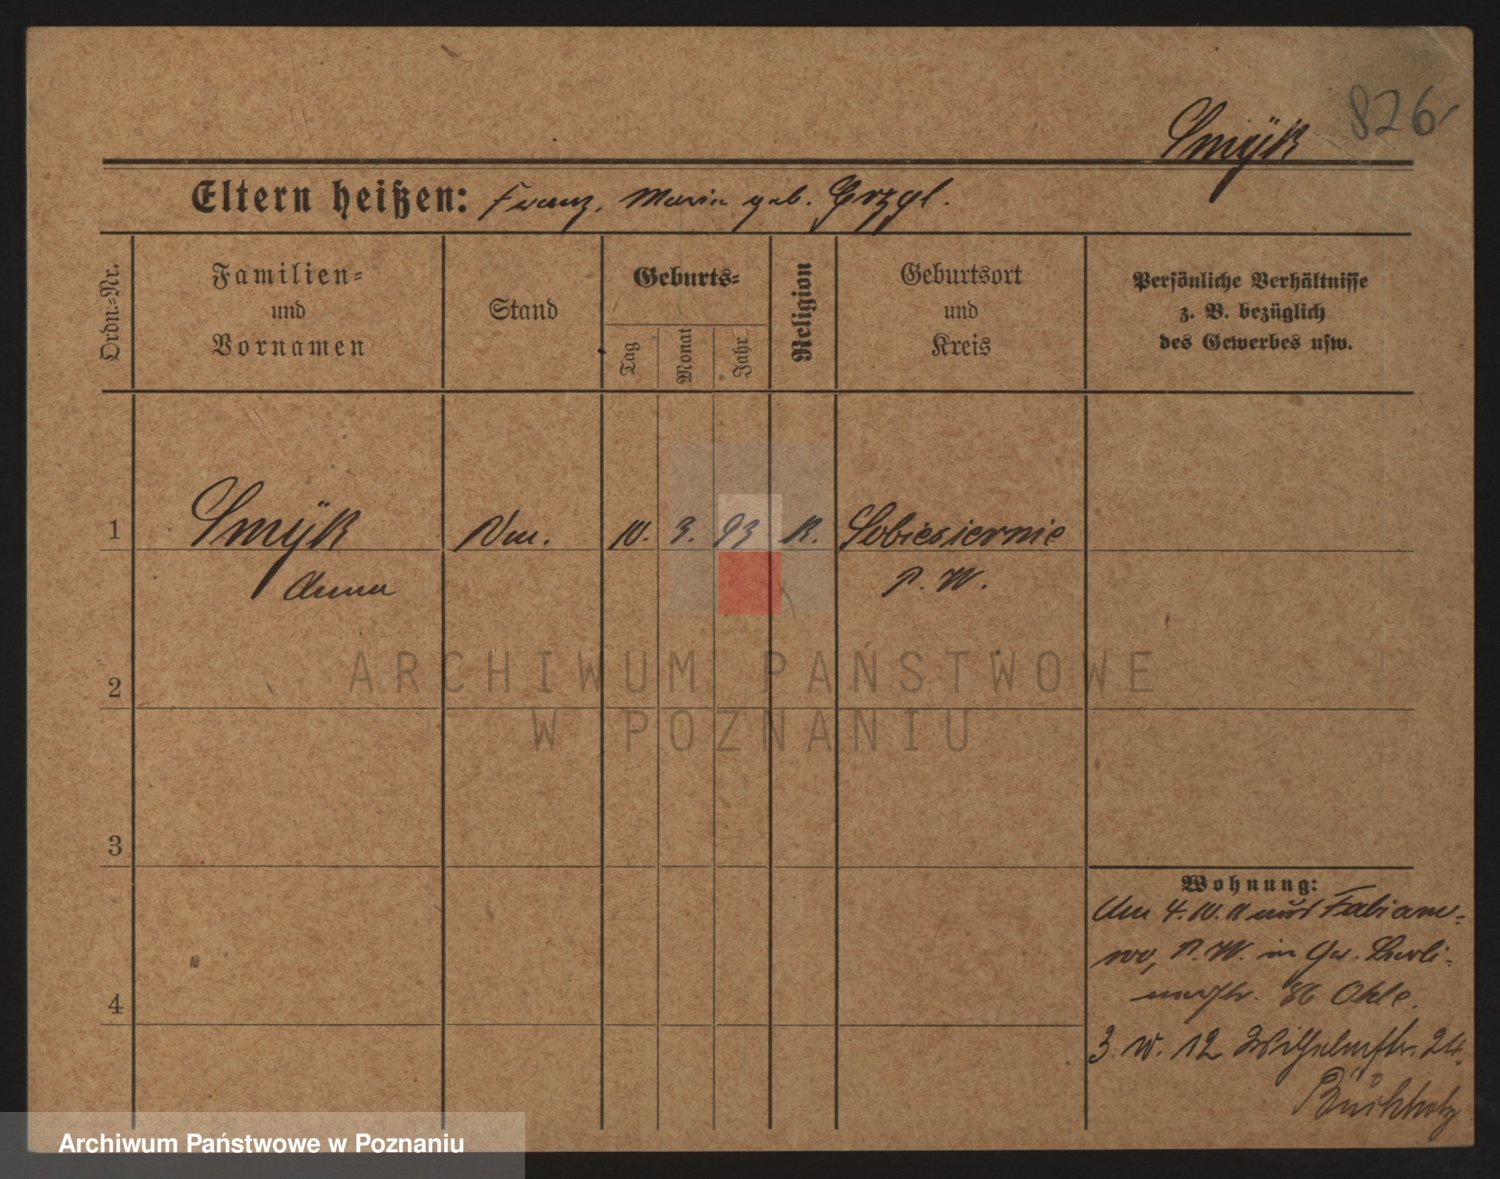 826
Smÿk
Eltern heißen: Franz, Maria geb. Grzgl.
Ordn.=Nr.
Familien=
und
Vornamen
Stand
Geburts=
Tag
Monat
Jahr
Religion
Geburtsort
und
Kreis
Persönliche Verhältnisse
z. B. bezüglich
des Gewerbes usw.
1 Smÿk 10. 3. 93 K. Sobiesiernie
Anna P. W.
2
3
4
Wohnung:
Am 4. 10. 11 aus Fabiano=
wo, P. W. in Gr. Berli=
nerstr. 86 Ohle.
3. 10. 12 Wilhelmstr. 24.
Buchholz
ARCHIWUM PAŃSTWOWE
W POZNANIU
Archiwum Państwowe w Poznaniu